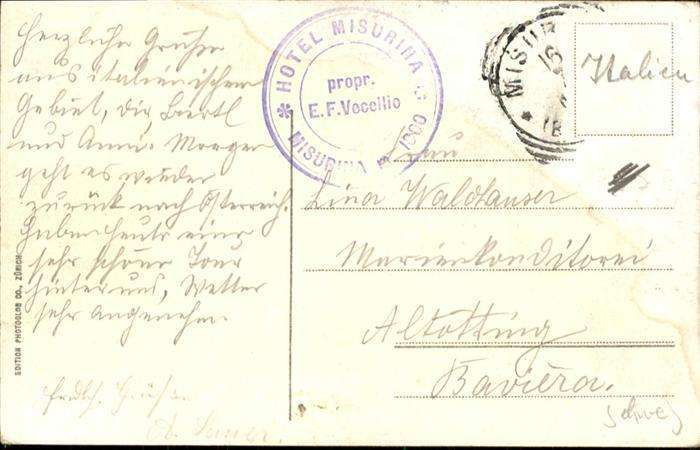 Herzliche Grüße
aus italienischem
Gebiet, die Bertl
und Anni. Morgen
geht es wieder
zurück nach Österreich.
Haben heute eine
sehr schöne Tour
hinter uns, Wetter
sehr angenehm.
HOTEL MISURINA
propr.
E. F. Vecellio
MISURINA
MISUR
Italien
Frau
Lina Waldhauser
Marienkonditorei
Altötting
Baviera.
EDITION PHOTOGLOB CO., ZÜRICH